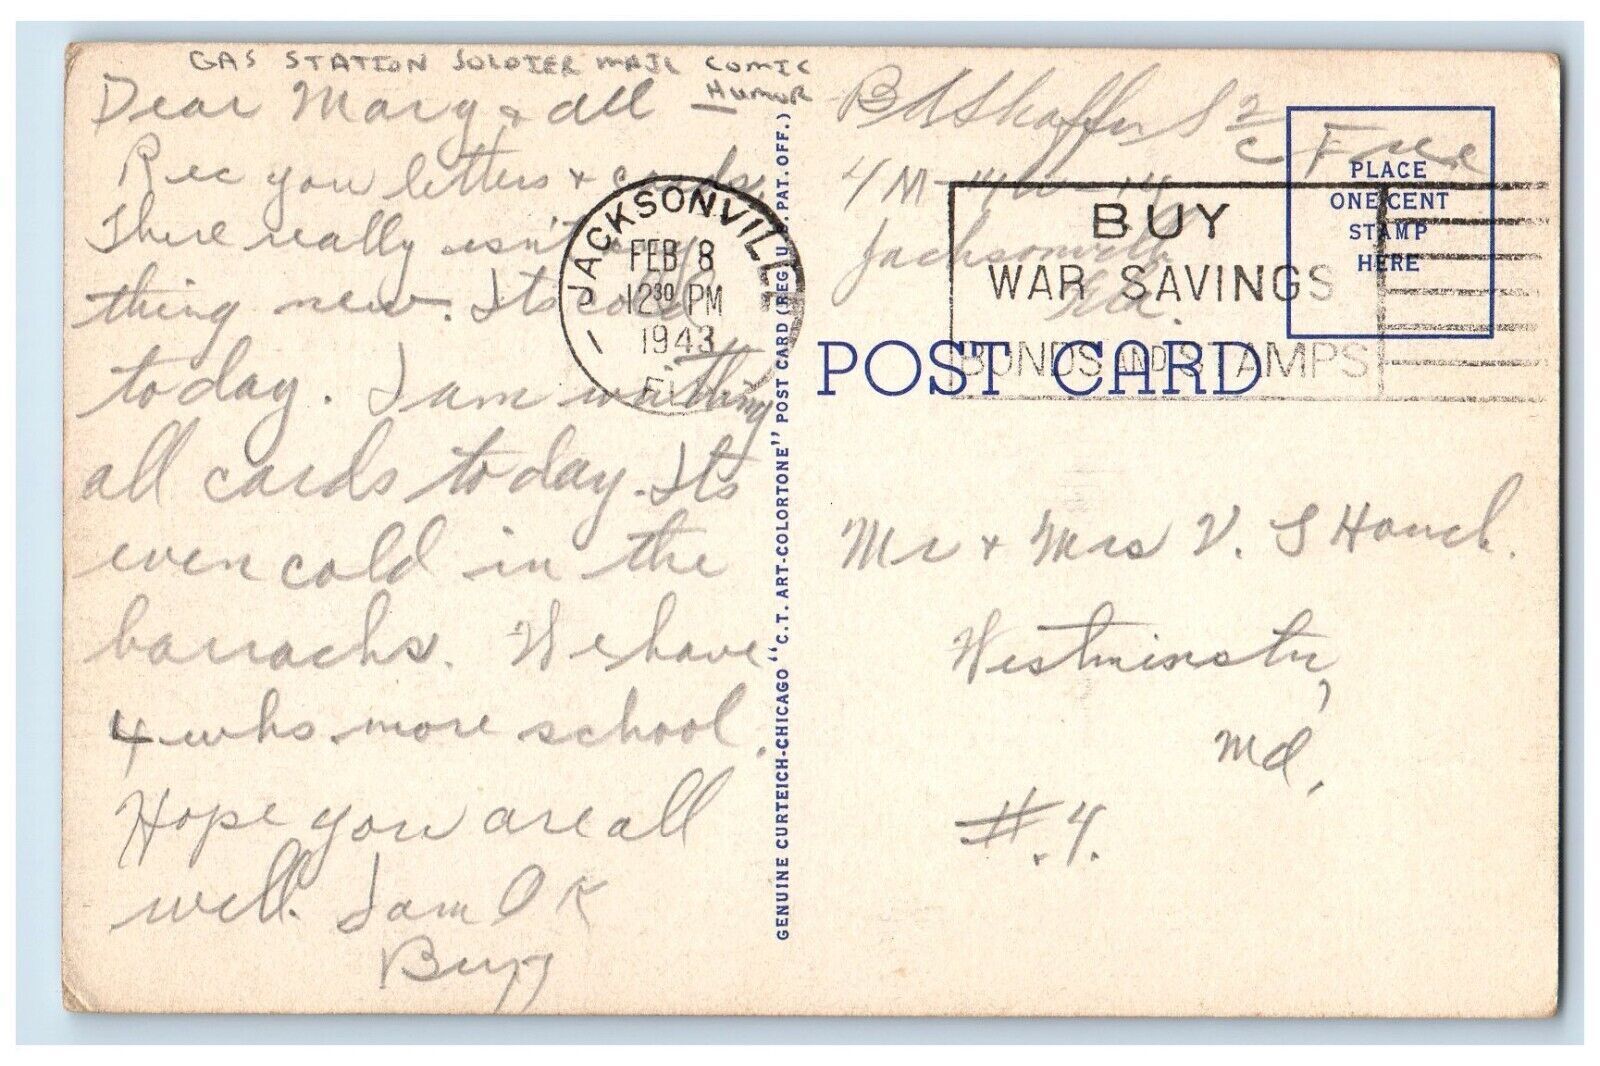 GAS STATION SOLDIER MAIL COMIC
HUMOR
Dear Mary & all —
Rec you letters & cards.
There really isn't any
thing new. Its cold
today. I am writhing
all cards today. Its
even cold in the
barracks. We have
4 wks. more school.
Hope you are all
well. I am OK
JACKSONVILLE
FEB 8
12 30 PM
1943
FLA
1
GENUINE CURTEICH-CHICAGO "C.T. ART-COLORTONE" POST CARD (REG. U.S. PAT. OFF.)
B Shaffer S 2/c Free
Jacksonville
Fla.
BUY
WAR SAVINGS
BONDS AND STAMPS
PLACE
ONE CENT
STAMP
HERE
POST CARD
Mr & Mrs V. S Houck.
Westminster,
Md.
#.4.